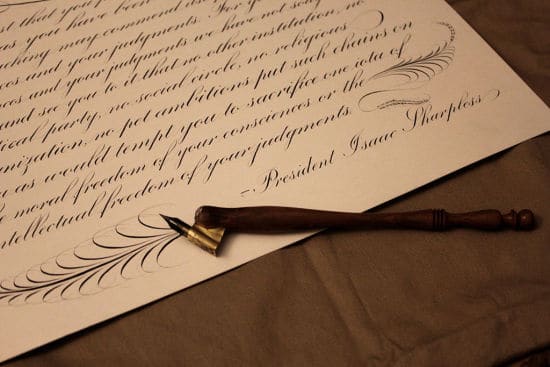 st that you
as you have been
nking may commend its
ces and your judgments. For
nces and your judgments we have not soug
and see you to it that no other institution, no
tical party, no social circle, no religious
nization, no pet ambitions put such chains on
u as would tempt you to sacrifice one iota of
e moral freedom of your consciences or the
ntellectual freedom of your judgments.
– President Isaac Sharpless